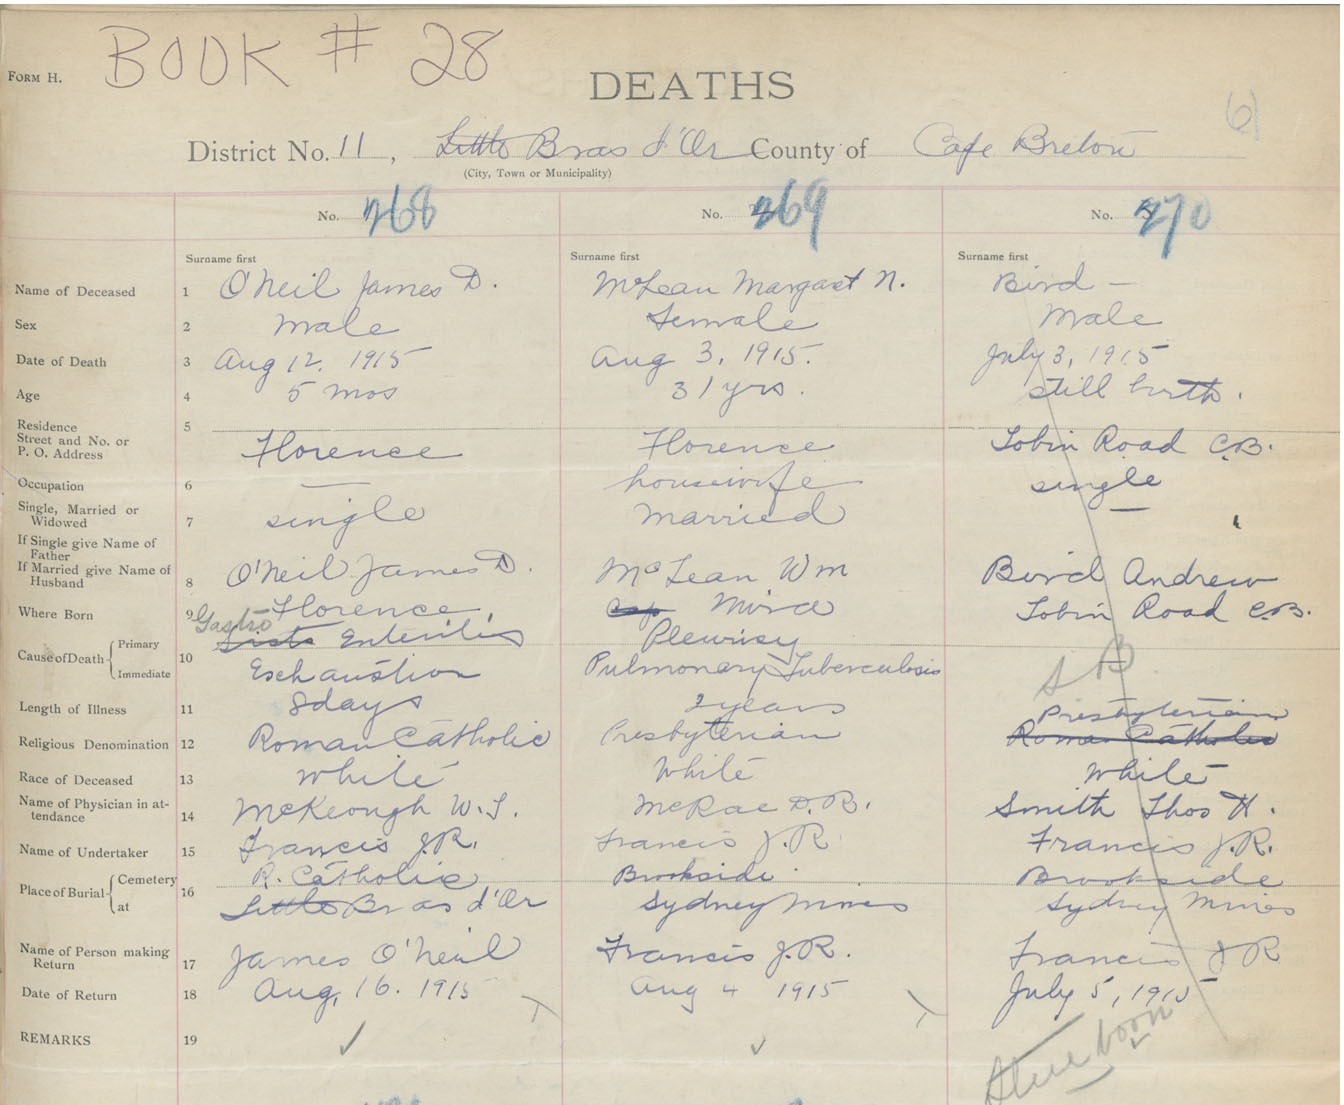 BOOK # 28
FORM H.
DEATHS
6
District No. 11, Little Bras d'Or County of Cape Breton
(City, Town or Municipality)
No. 268 No. 269 No. 270
Surname first Surname first Surname first
Name of Deceased 1 O'Neil James D. McLean Margaret N. Bird —
Sex 2 male Female Male
Date of Death 3 Aug 12. 1915 Aug 3, 1915. July 3, 1915
Age 4 5 mos 31 yrs. still birth.
Residence
Street and No. or
P. O. Address 5 Florence Florence Tobin Road C.B.
Occupation 6 — housewife single
Single, Married or
Widowed 7 single Married —
If Single give Name of
Father
If Married give Name of
Husband 8 O'Neil James D. McLean Wm Bird Andrew
Where Born 9 Florence, Mira Tobin Road C.B.
Cause of Death Primary Gastro Enteritis Pleurisy
10
Immediate Exhaustion Pulmonary Tuberculosis S B
Length of Illness 11 8 days 2 years
Presbyterian
Religious Denomination 12 Roman Catholic Presbyterian Roman Catholic
Race of Deceased 13 White White White
Name of Physician in at-
tendance 14 McKeough W. J. McRae D. R. Smith Thos H.
Name of Undertaker 15 Francis J.R. Francis J.R. Francis J.R.
Place of Burial Cemetery R. Catholic Brookside Brookside
16
at Little Bras d'Or Sydney Mines Sydney Mines
Name of Person making
Return 17 James O'Neil Francis J.R. Francis J R
Date of Return 18 Aug, 16. 1915 Aug 4 1915 July 5, 1915
REMARKS 19 ✓ ✓
Still born